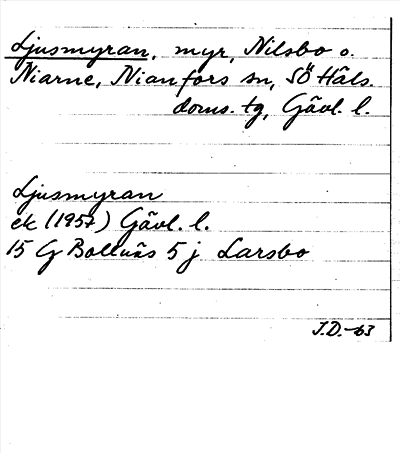 Ljusmyran, myr, Nilsbo o.
Niarne, Nianfors sn, SÖ Häls.
doms. tg, Gävl. l.
Ljusmyran
ek (1957) Gävl. l.
15 G Bollnäs 5 j Larsbo
J.D.-63